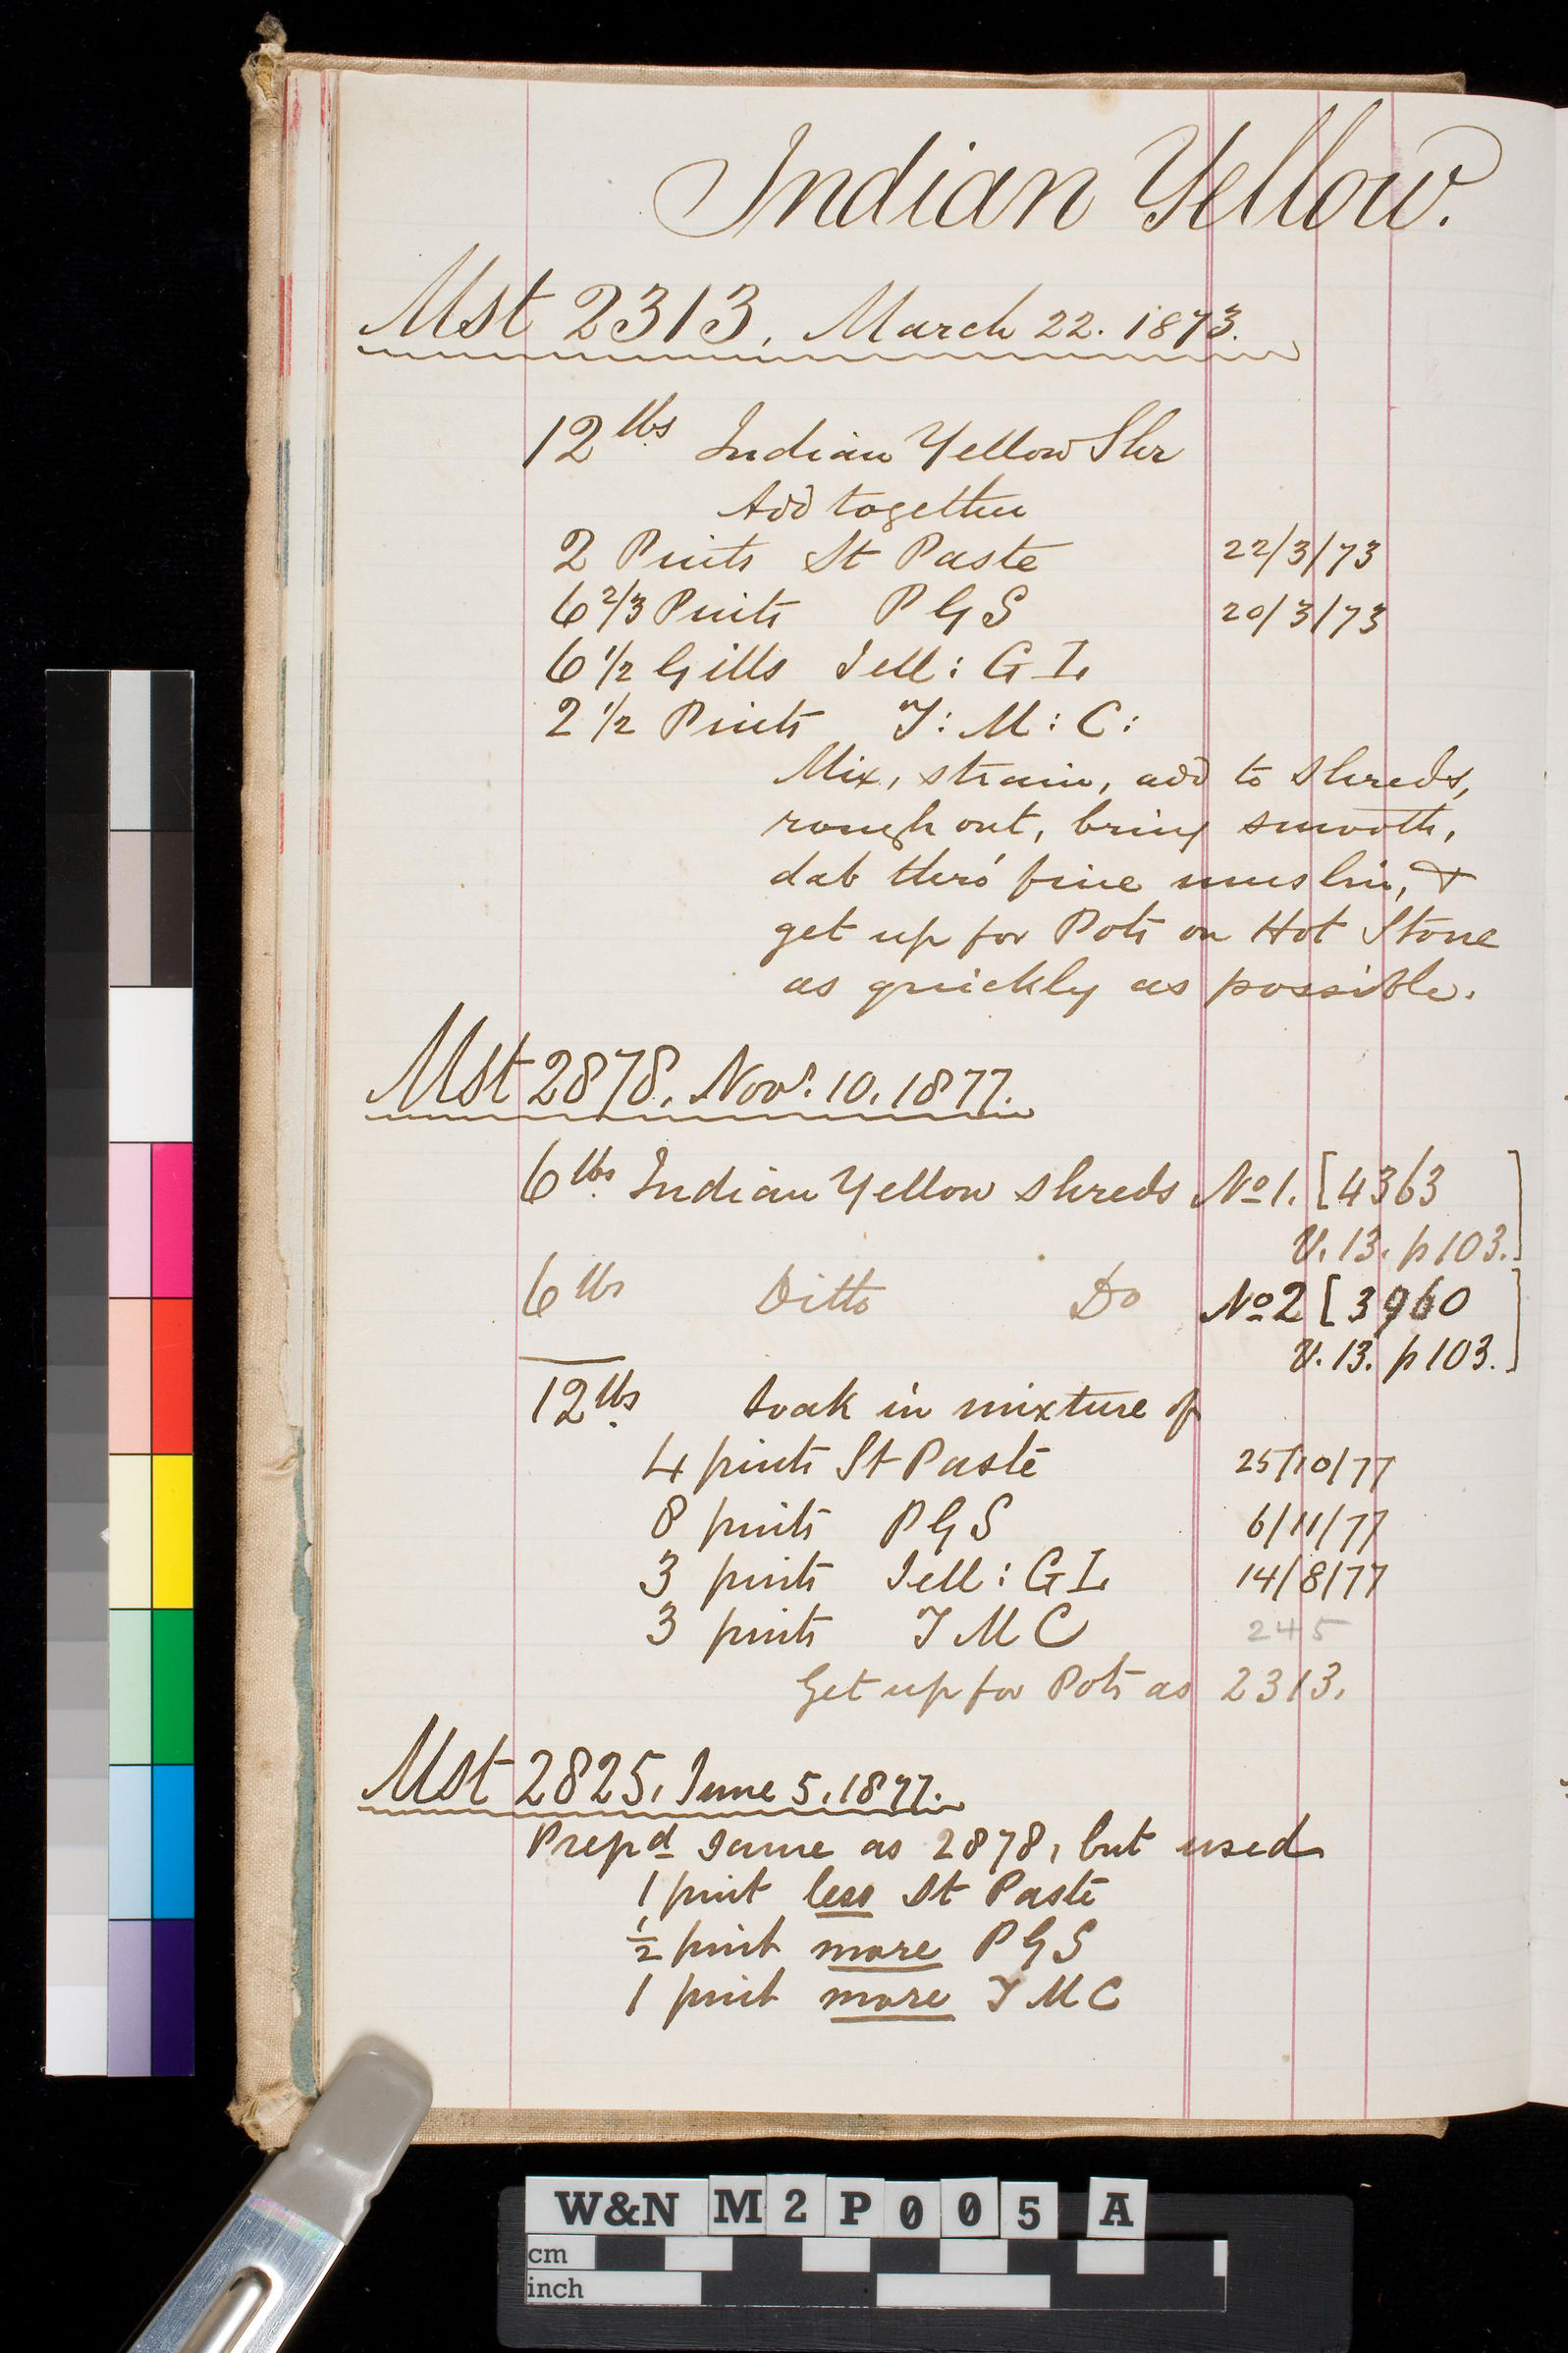 Indian Yellow.
Mst 2313, March 22. 1873.
12 lbs Indian Yellow Shr
Add together
2 Pints St Paste 22/3/73
6 2/3 Pints P G S 20/3/73
6 1/2 Gills Jell: G I,
2 1/2 Pints T: M: C:
Mix, strain, add to shreds,
rough out, bring smooth,
dab thro' fine muslin, &
get up for Pots on Hot Stone
as quickly as possible.
Mst 2878, Novr. 10. 1877.
6 lbs. Indian Yellow shreds No 1. [4363
V. 13. p 103.]
6 lbs Ditto Do No 2 [3960
V. 13. p 103.]
12 lbs. Soak in mixture of
4 pints St Paste 25/10/77
8 pints P G S 6/11/77
3 pints Jell: G I, 14/8/77
3 pints T M C 245
Get up for Pots as 2313.
Mst 2825, June 5, 1877.
Prepd same as 2878, but used
1 pint less St Paste
1/2 pint more P G S
1 pint more T M C
W&N M2P005 A
cm
inch